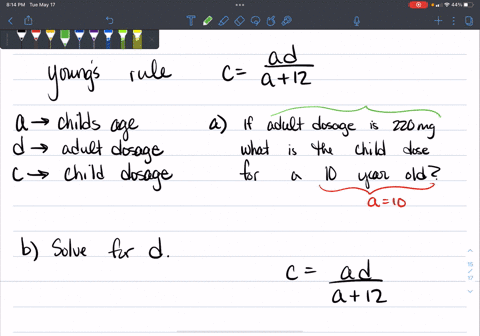 8:14 PM Tue May 17
44%
young's rule
c = ad / a+12
a → childs age
d → adult dosage
c → child dosage
a) If adult dosage is 220 mg
what is the child dose
for a 10 year old?
a=10
b) Solve for d.
c = ad / a+12